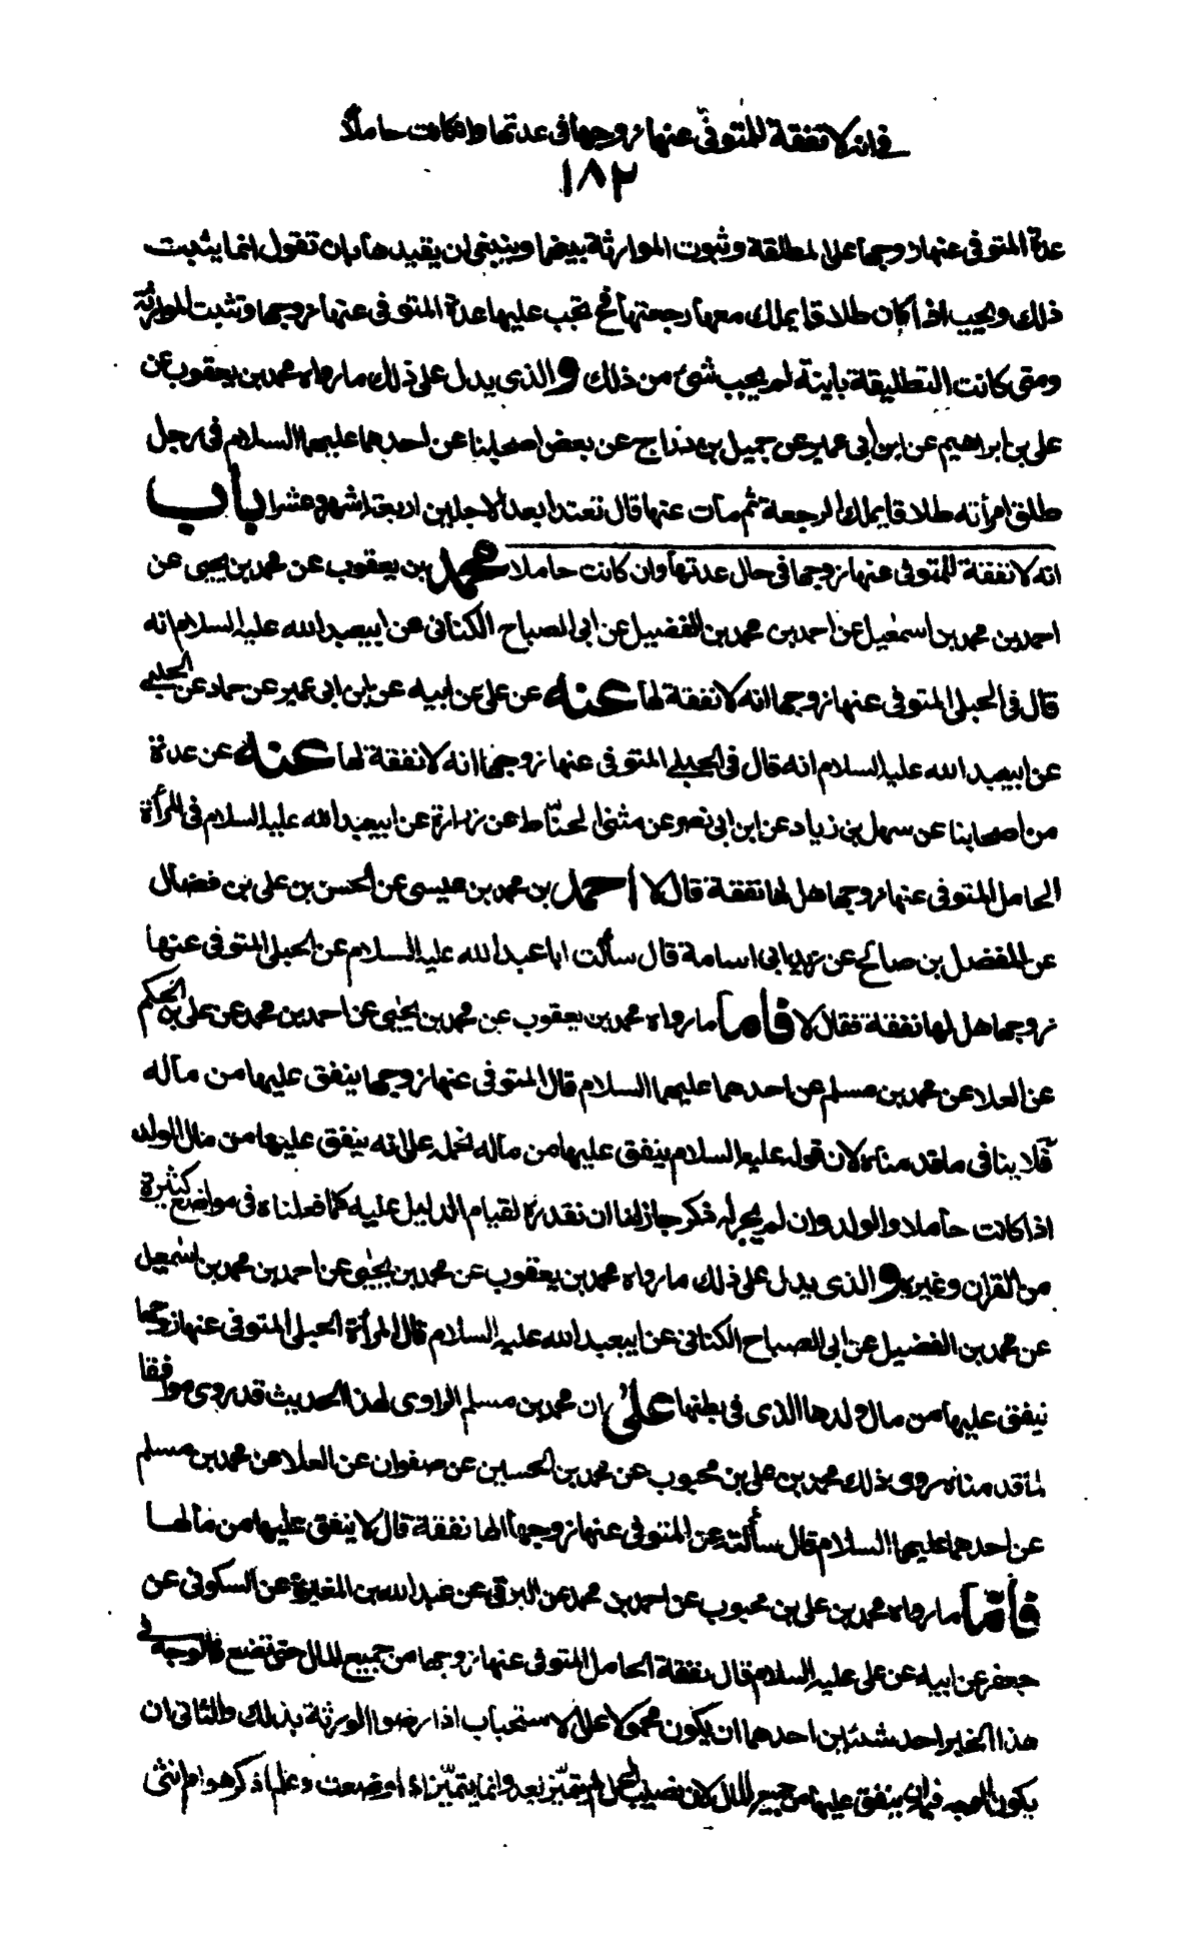 في انه لا نفقة للمتوفى عنها زوجها في عدتها وان كانت حاملا
١٨٢
عدة المتوفى عنها زوجها على المطلقة وثبوت الموارثة بينهما وينبغي ان يقيدها بان تقول انما يثبت
ذلك ويجب اذا كان طلاقا يملك معها رجعتها فح تجب عليها عدة المتوفى عنها زوجها وتثبت الموارثة
ومتى كانت التطليقة باينة لم يجب شئ من ذلك والذي يدل على ذلك ما رواه محمد بن يعقوب عن
علي بن ابراهيم عن ابن أبي عمير عن جميل بن دراج عن بعض اصحابنا عن احدهما عليهما السلام في رجل
طلق امرأته طلاقا يملك الرجعة ثم مات عنها قال تعتد ابعد الاجلين اربعة اشهر وعشرا باب
انه لا نفقة للمتوفى عنها زوجها في حال عدتها وان كانت حاملا محمد بن يعقوب عن محمد بن يحيى عن
احمد بن محمد بن اسمعيل عن احمد بن محمد بن الفضيل عن ابي الصباح الكناني عن ابيعبد الله عليه السلام انه
قال في الحبلى المتوفى عنها زوجها انه لا نفقة لها عنه عن علي عن ابيه عن ابن ابي عمير عن حماد عن الحلبي
عن ابيعبد الله عليه السلام انه قال في الحبلى المتوفى عنها زوجها انه لا نفقة لها عنه عن عدة
من اصحابنا عن سهل بن زياد عن ابن ابي نصر عن مثنى الحناط عن زرارة عن ابيعبد الله عليه السلام في المرأة
الحامل المتوفى عنها زوجها هل لها نفقة قال لا احمد بن محمد بن عيسى عن الحسن بن علي بن فضال
عن المفضل بن صالح عن زيد ابي اسامة قال سألت ابا عبد الله عليه السلام عن الحبلى المتوفى عنها
زوجها هل لها نفقة فقال لا فاما ما رواه محمد بن يعقوب عن محمد بن يحيى عن احمد بن محمد عن علي بن الحكم
عن العلا عن محمد بن مسلم عن احدهما عليهما السلام قال المتوفى عنها زوجها ينفق عليها من ماله
فلا ينافى ما قدمناه لان قوله عليه السلام ينفق عليها من ماله نحمله على انه ينفق عليها من مال الولد
اذا كانت حاملا والولد وان لم يجر له ذكر جاز لنا ان نقدره لقيام الدليل عليه كما فعلناه في مواضع كثيرة
من القران وغيره والذي يدل على ذلك ما رواه محمد بن يعقوب عن محمد بن يحيى عن احمد بن محمد بن اسمعيل
عن محمد بن الفضيل عن ابي الصباح الكناني عن ابيعبد الله عليه السلام قال المرأة الحبلى المتوفى عنها زوجها
ينفق عليها من مال ولدها الذي في بطنها على ان محمد بن مسلم الراوي لهذا الحديث قد روى موافقا
لما قدمناه روى ذلك محمد بن علي بن محبوب عن محمد بن الحسين عن صفوان عن العلا عن محمد بن مسلم
عن احدهما عليهما السلام قال سألته عن المتوفى عنها زوجها الها نفقة قال لا ينفق عليها من مالها
فاما ما رواه محمد بن علي بن محبوب عن احمد بن محمد عن البرقي عن عبد الله بن المغيرة عن السكوني عن
جعفر عن ابيه عن علي عليه السلام قال نفقة الحامل المتوفى عنها زوجها من جميع المال حتى تضع فالوجه في
هذا الخبر احد شيئين احدهما ان يكون محمولا على الاستحباب اذا رضوا الورثة بذلك والثاني ان
يكون الوجه فيه ان ينفق عليها من جميع المال لان نصيب الحمل لم يتميز بعد وانما يتميز اذا وضعت وعلم اذكر هو ام انثى